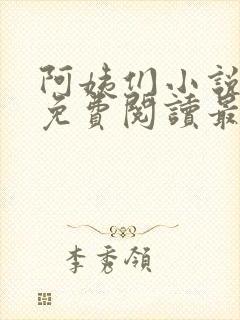 阿姨们小說
免費閱讀最
李秀領